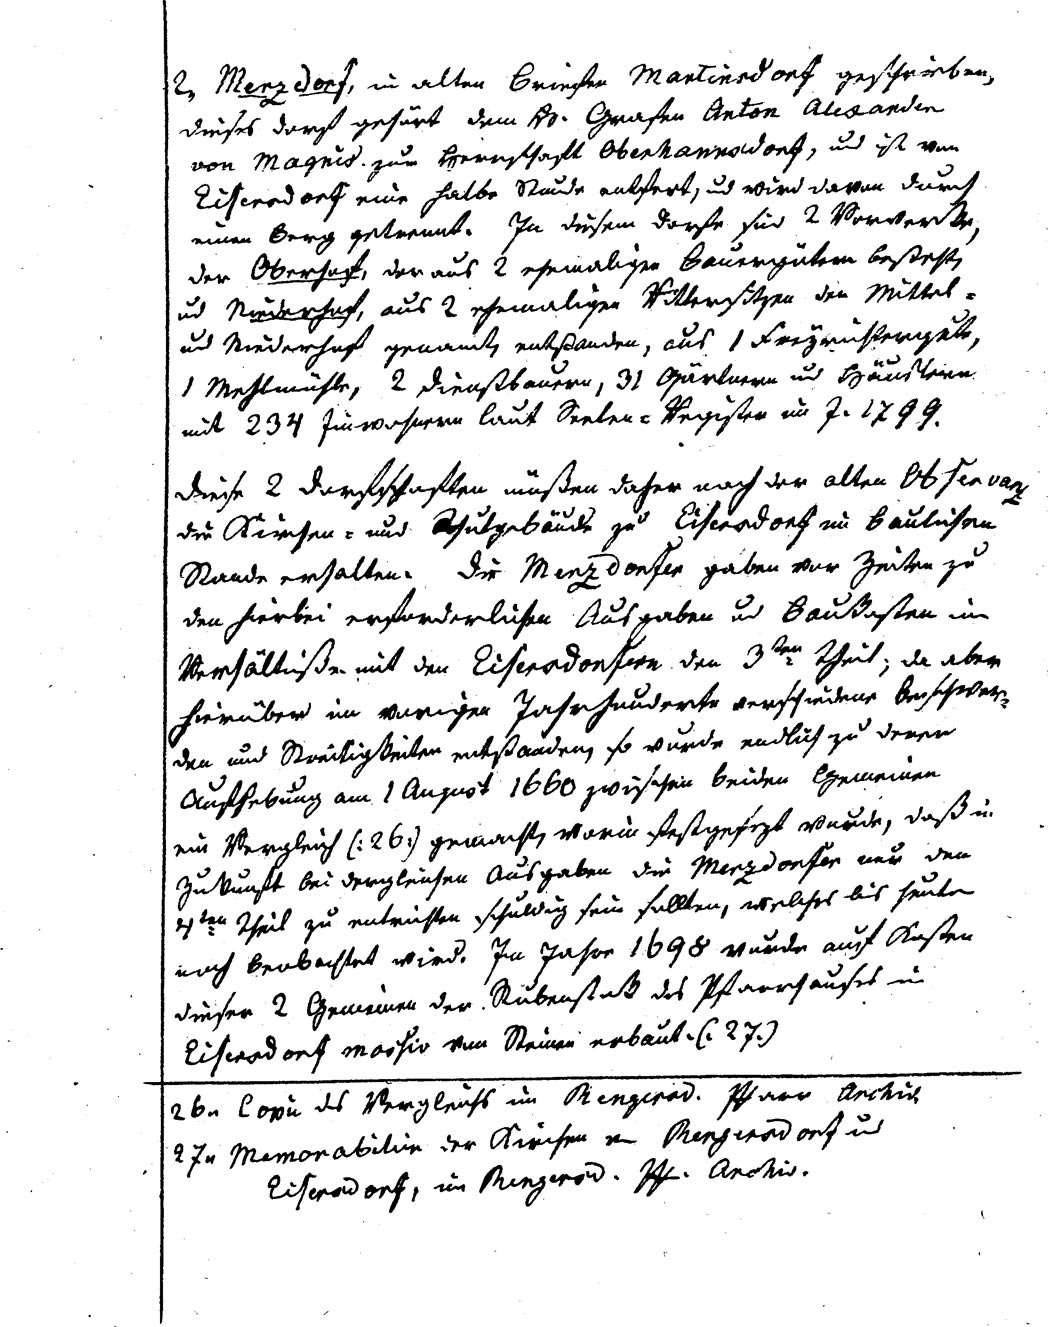 2, Merzdorf, in alten Briefen Martinsdorf geschrieben,
dieses Dorf gehört dem H. Grafen Anton Alexander
von Magnis zur Herrschaft Oberhannsdorf, und ist von
Eisersdorf eine halbe Stunde entfert, ud wird davon durch
einen Berg getrennt. In diesem Dorfe sind 2 Vorwerke,
der Oberhof, der aus 2 ehemaligen Bauergütern besteht,
ud Niederhof, aus 2 ehemaligen Rittersitzen den Mittel-
ud Niederhof genannt, entstanden, aus 1 Freyrichtergute,
1 Mehlmühle, 2 Dienstbauern, 31 Gärtnern ud Häuslern
mit 234 Inwohnern laut Seelen-Register im J. 1799.
Diese 2 Dorfschaften müßen daher nach der alten Observanz
die Kirchen- und Schulgebäude zu Eisersdorf im baulichen
Stande erhalten. Die Merzdorfer gaben vor Zeiten zu
den hierbei erforderlichen Ausgaben ud Baukosten im
Verhältniße mit den Eisersdorfern den 3ten Theil; da aber
hierüber im vorigen Jahrhunderte verschiedene Beschwer-
den und Streitigkeiten entstanden, so wurde endlich zu deren
Aufhebung am 1 August 1660 zwischen beiden Gemeinen
ein Vergleich (:26:) gemacht, worin festgesezt wurde, daß in
Zukunft bei dergleichen Ausgaben die Merzdorfer nur den
4ten Theil zu entrichten schuldig sein sollten, welches bis heute
noch beobachtet wird. Im Jahre 1698 wurde auf Kosten
dieser 2 Gemeinen der Stubenstok des Pfarrhauses in
Eisersdorf massiv von Steinen erbaut. (:27:)
26. Copie des Vergleichs im Rengersd. Pfarr Archiv.
27. Memorabilien der Kirchen in Rengersdorf ud
Eisersdorf, im Rengersd. Pf. Archiv.